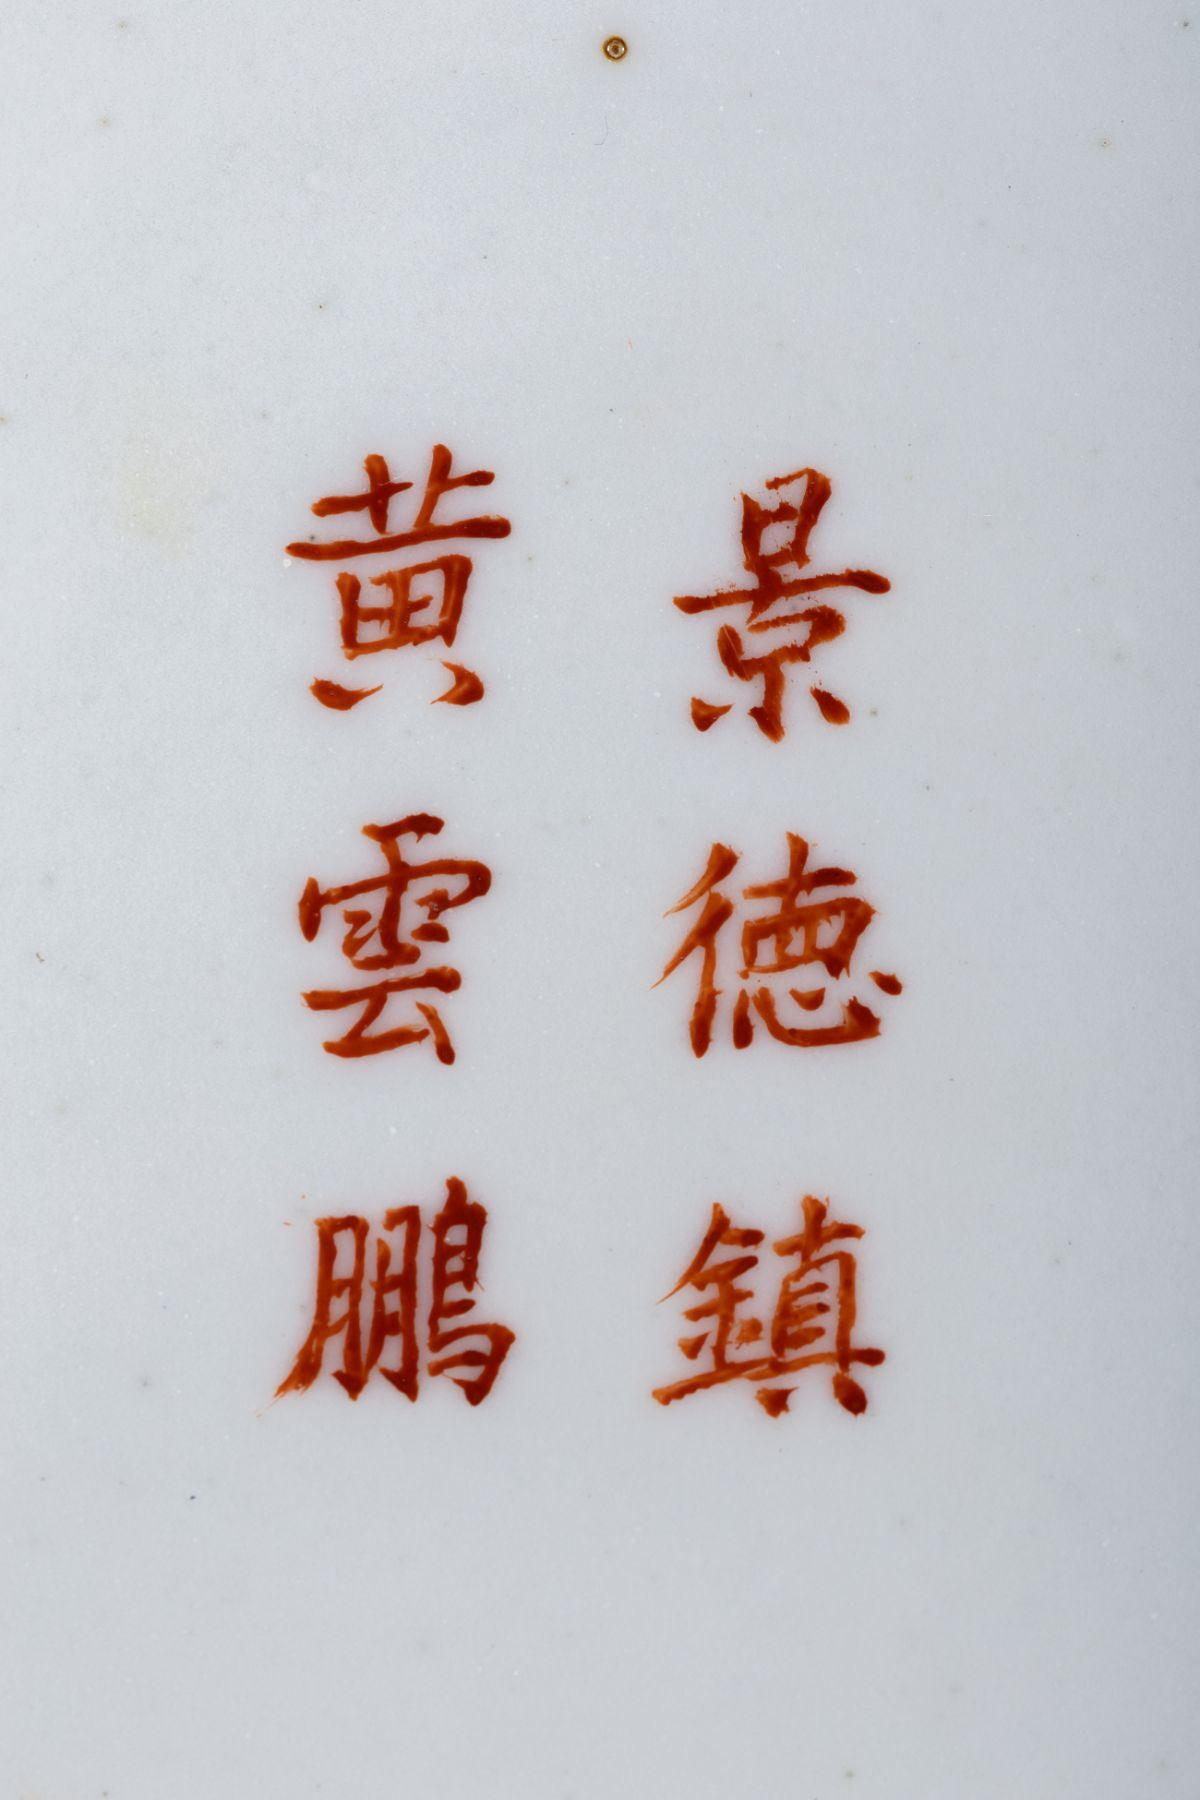 景德鎮
黄雲鵬